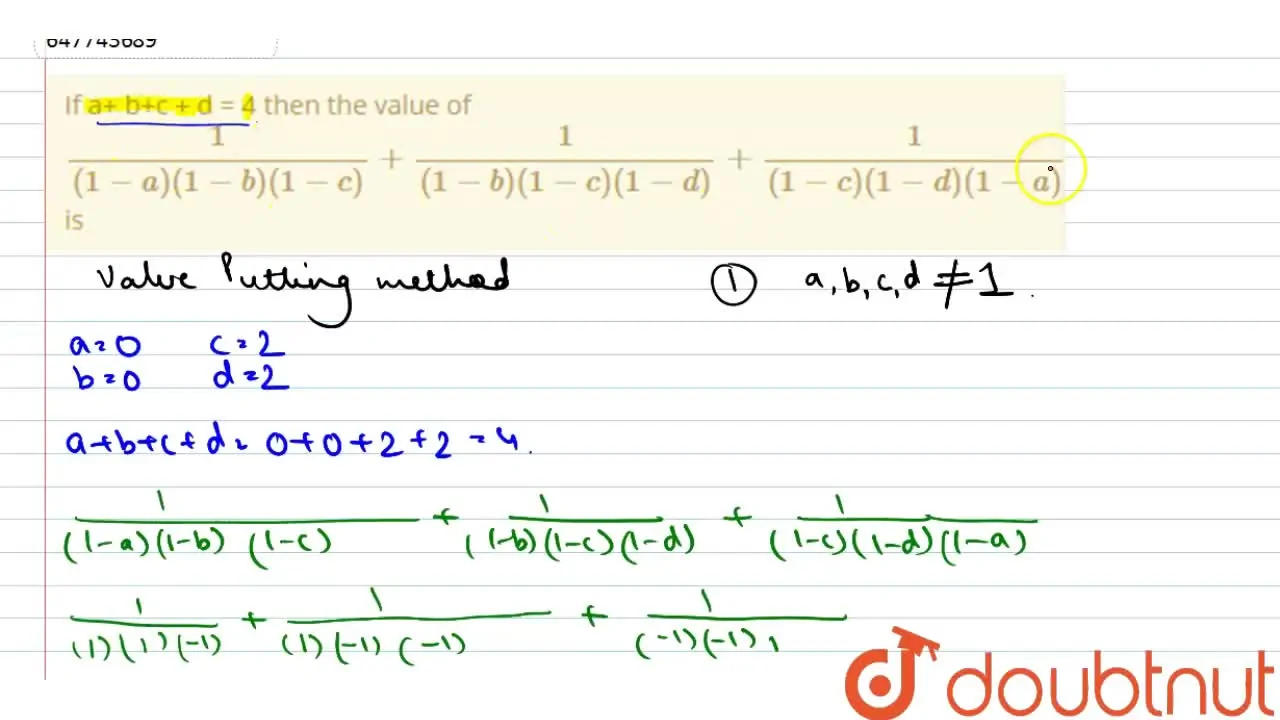 647745689
If a+ b+c + d = 4 then the value of
1/((1 − a)(1 − b)(1 − c)) + 1/((1 − b)(1 − c)(1 − d)) + 1/((1 − c)(1 − d)(1 − a))
is
Value Putting method ① a, b, c, d ≠ 1.
a = 0 c = 2
b = 0 d = 2
a+b+c+d = 0+0+2+2 = 4.
1/((1-a)(1-b)(1-c)) + 1/((1-b)(1-c)(1-d)) + 1/((1-c)(1-d)(1-a))
1/((1)(1)(-1)) + 1/((1)(-1)(-1)) + 1/((-1)(-1)1
doubtnut